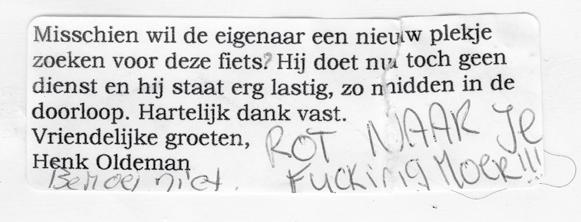 Misschien wil de eigenaar een nieuw plekje
zoeken voor deze fiets? Hij doet nu toch geen
dienst en hij staat erg lastig, zo midden in de
doorloop. Hartelijk dank vast.
Vriendelijke groeten,
Henk Oldeman
ROT NAAR JE
FUCKING MOER!!!
Bemoei niet.